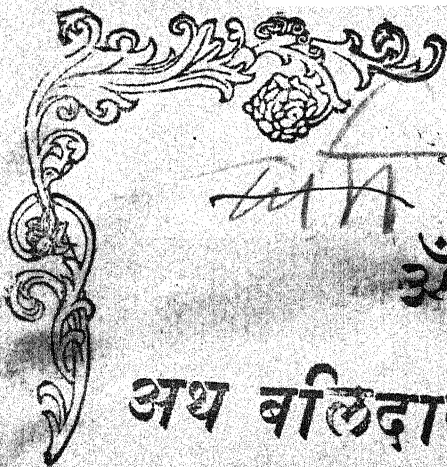 ॐ
अथ बलिदा